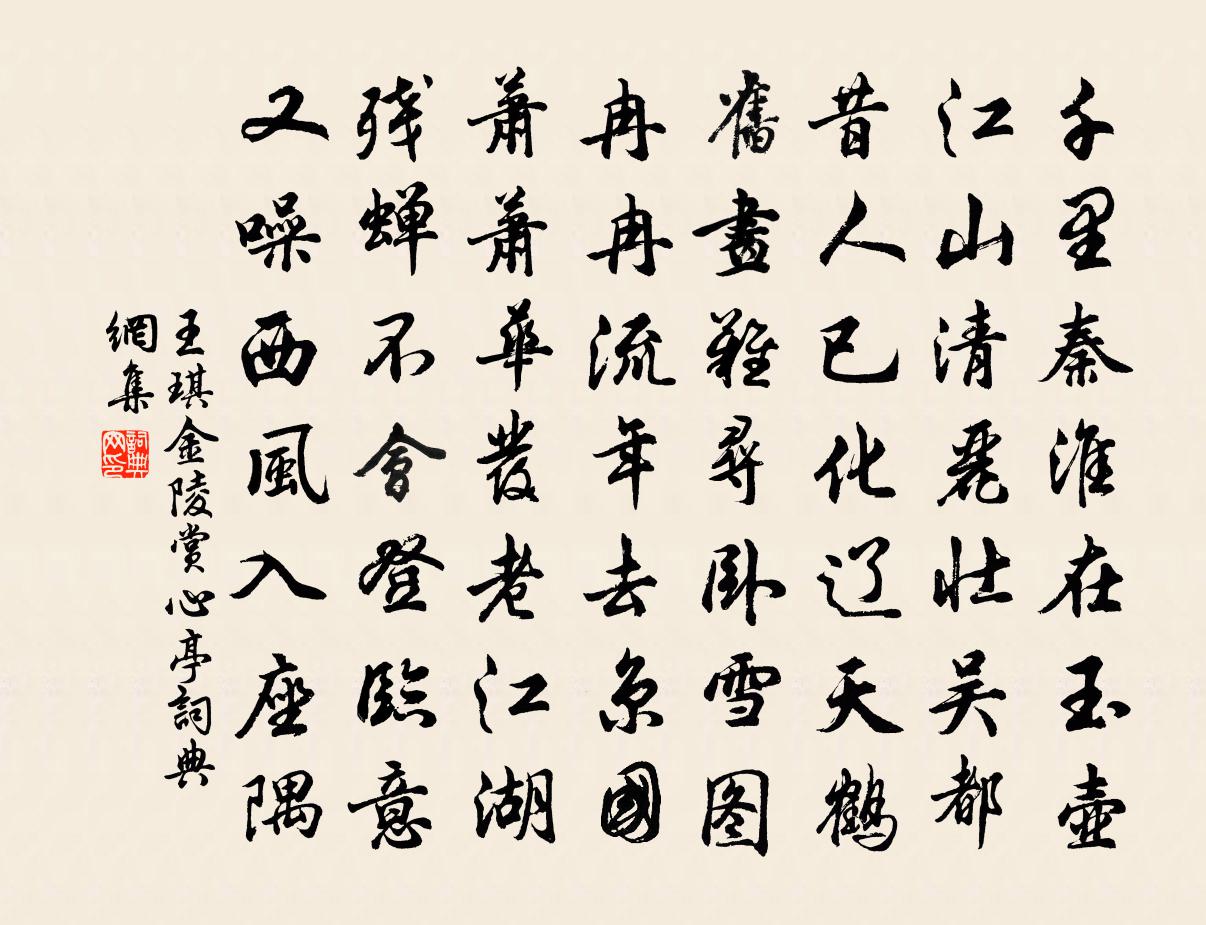 千里秦淮在玉壶
江山清麗壮吴都
昔人已化辽天鹤
舊畫難尋卧雪图
冉冉流年去京國
蕭蕭華發老江湖
残蝉不會登臨意
又噪西風入座隅
王琪金陵賞心亭詞典
網集
詞典
网印